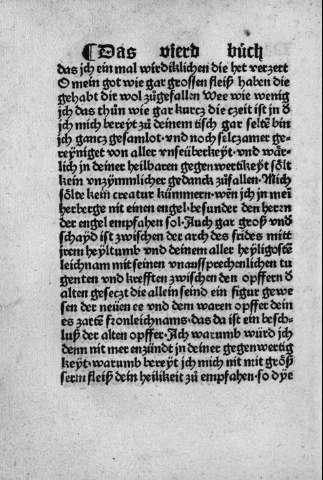 ¶Das vierd bůch
das jch ein mal wirdiklichen die het verzett
O mein got wie gar grossen fleiß haben die
gehabt dir wol zůgefallen Wee wie wenig
jch das thůn wie gar kurcz die czeit ist in ð
jch mich bereyt zů deinem tisch gar seltē bin
jch gancz gesamlot · vnd noch selczamer ge-
reyniget von aller vnseüberkeyt · vnd wār-
lich in deiner heilbaren gegenwertikeyt sölt
kein vnzymmlicher gedanck zůfallen · Mich
sölte kein creatur kümmern · wēn jch in mein
herberge nit einen engel · besunder den herrn
der engel empfahen sol · Auch gar groß vnd
schayd ist zwischen der arch des frides mitt
jrem heyltumb vnd deinem aller heyligostē
leichnam mit seinen vnaussprechenlichen tu
genten vnd krefften zwischen den opffern ð
alten gesecz die allein seind ein figur gewe
sen der neüen ee vnd dem waren opffer dein
es zartē fronleichnams · das da ist ein besch-
luß der alten opffer · Ach warumb würd jch
denn nit mer enzündt in deiner gegenwertig
keyt · warumb bereyt jch mich nit mit gröſ
serm fleiß dein heilikeit zů empfahen · so dye